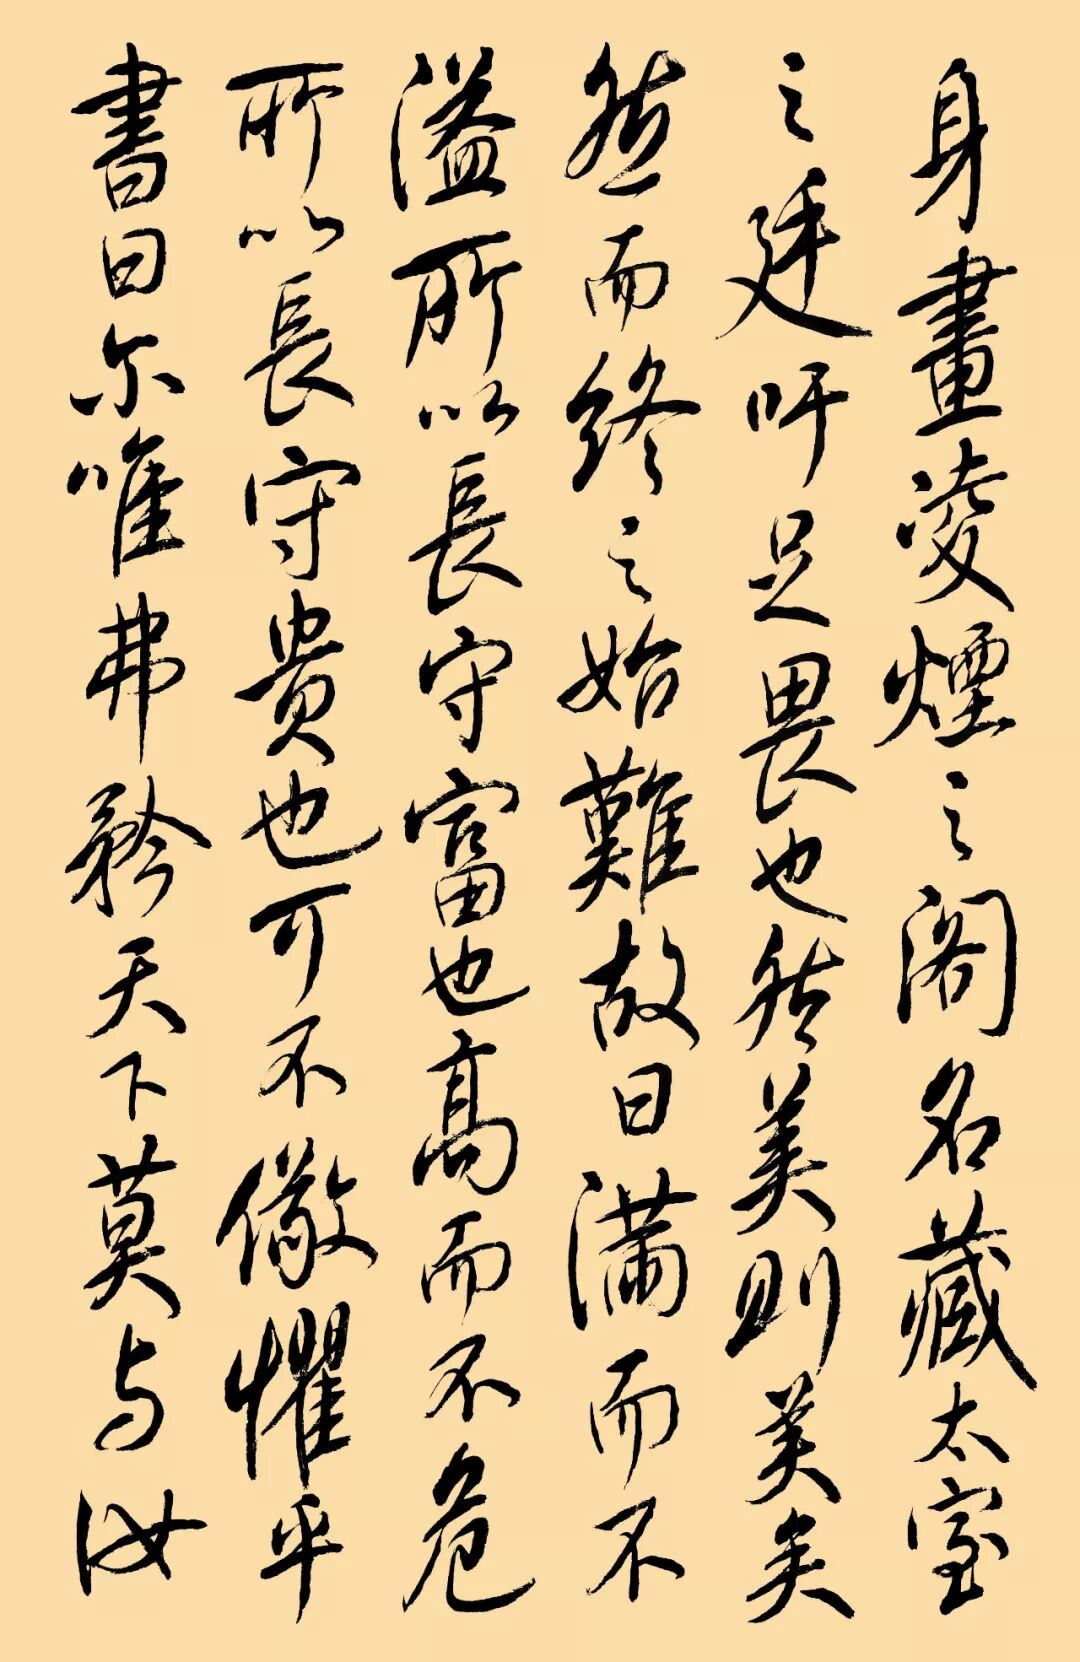 身畫凌煙之阁名藏太室
之廷吁足畏也然美則美矣
然而终之始難故曰满而不
溢所以長守富也高而不危
所以長守貴也可不儆懼乎
書曰尔唯弗矜天下莫与汝